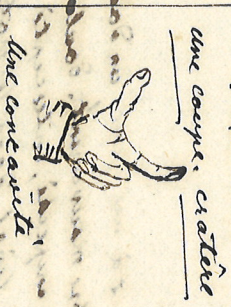 une coupe. cratère
une concavité